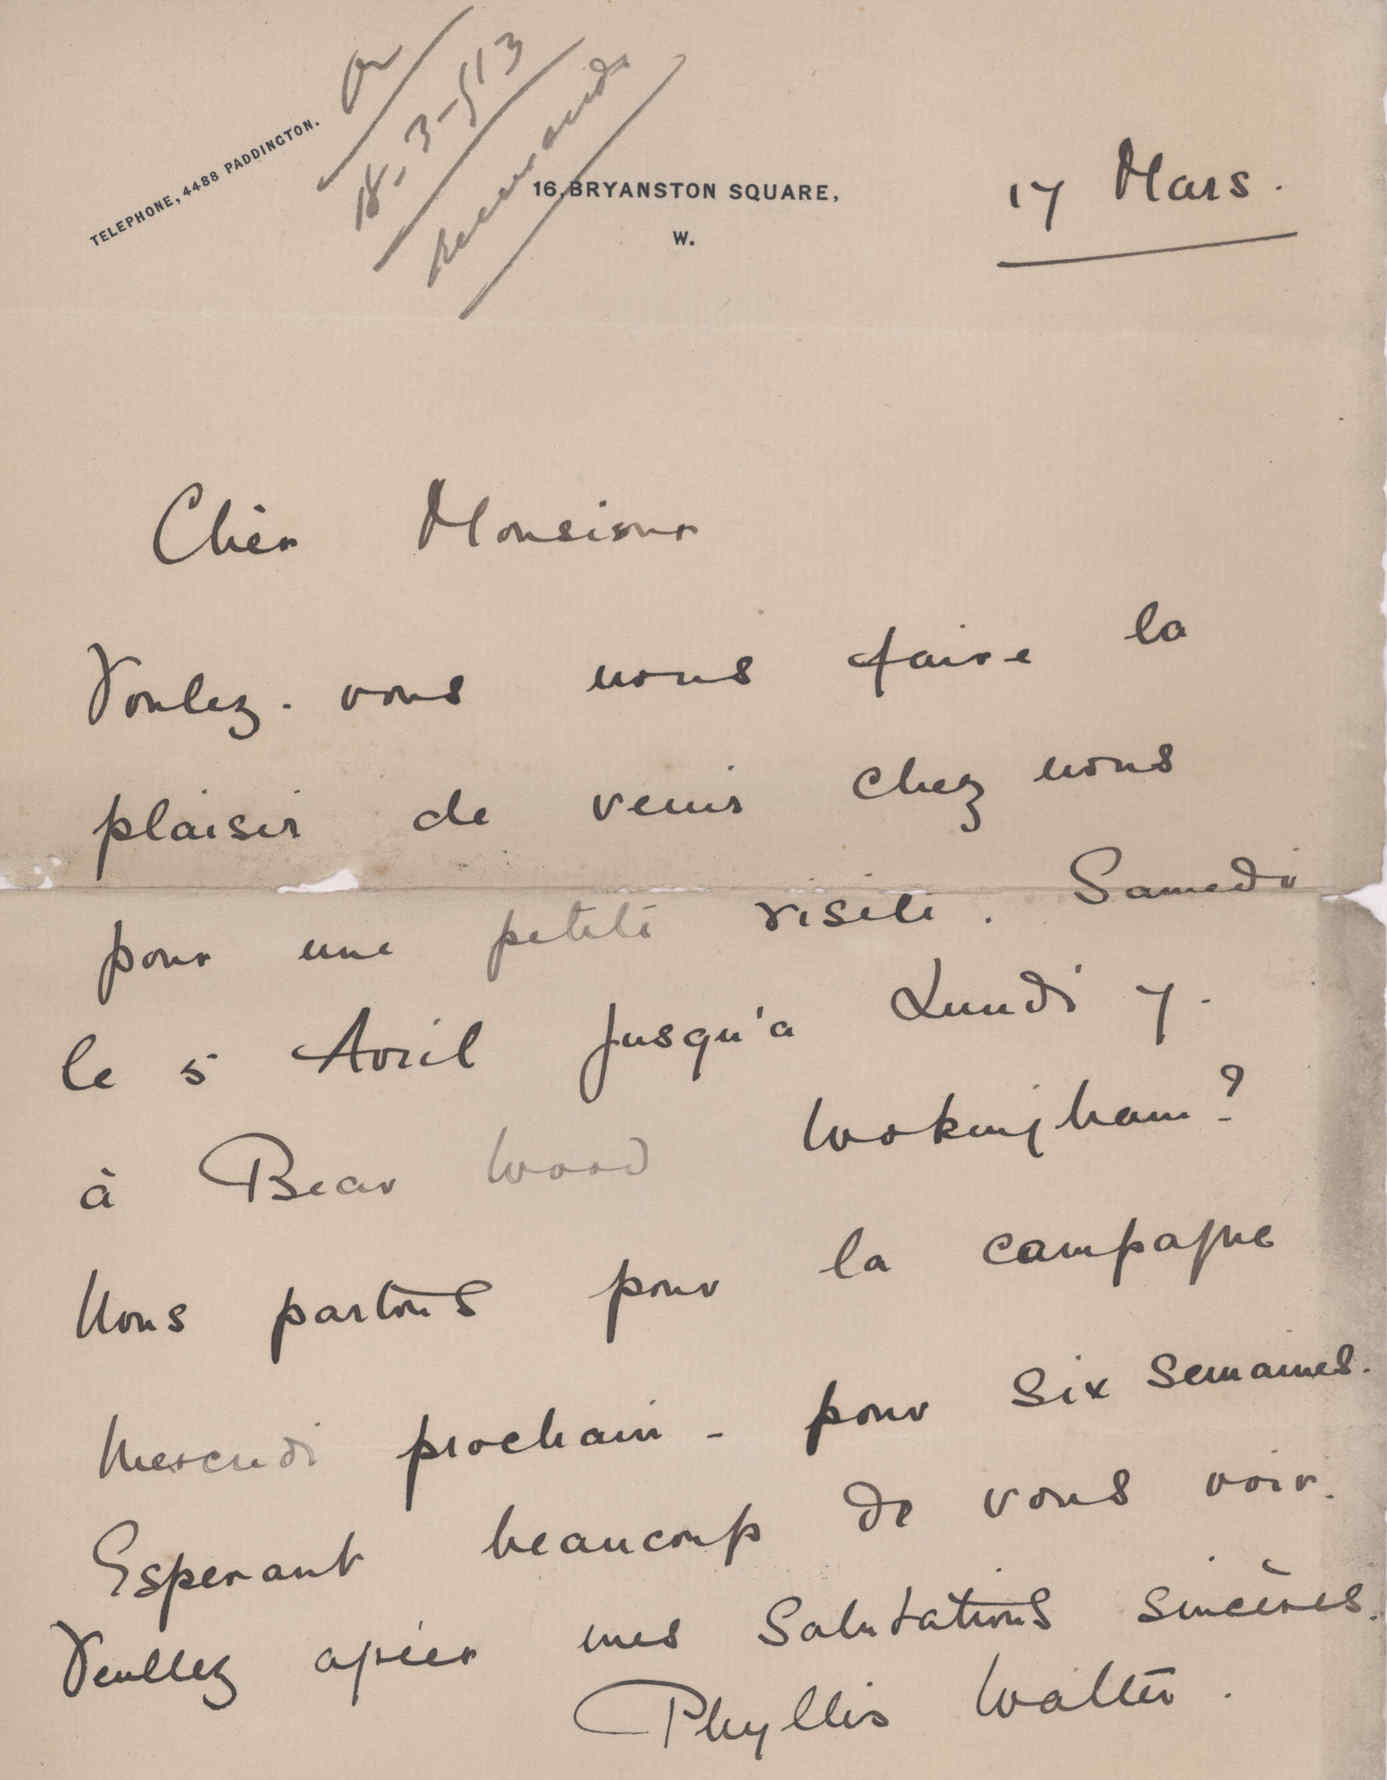 TELEPHONE, 4488 PADDINGTON.
18-3-913
16, BRYANSTON SQUARE,
W.
17 Mars.
Chèr Monsieur
Voulez-vous nous faire la
plaisir de venir chez nous
pour une petite visite. Samedi
le 5 Avril jusqu'a Lundi 7.
à Bear Wood Wokingham?
Nous partons pour la campagne
Mercredi prochain - pour six semaines.
Esperant beaucoup de vous voir.
Veullez agréer mes Salutations sincères.
Phyllis Walter.